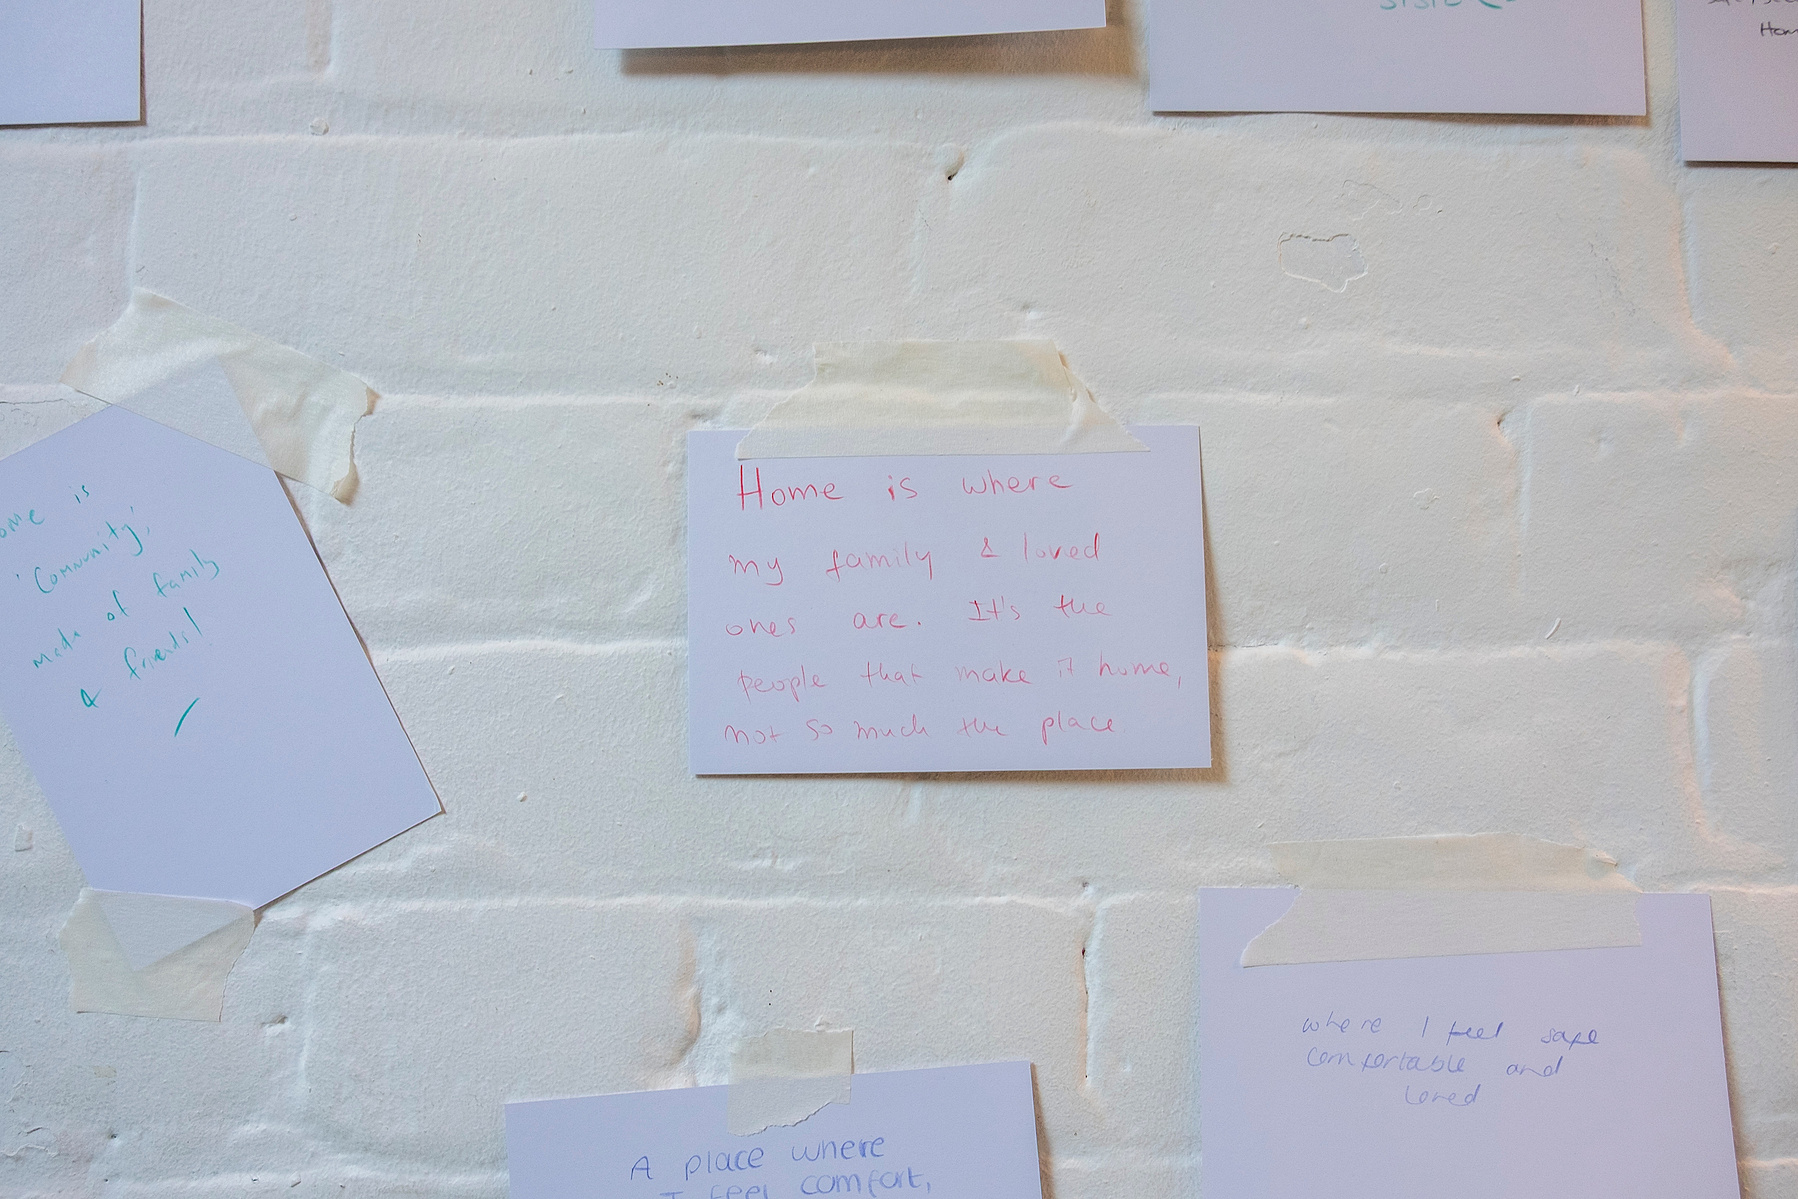 Home
ome is
'Community',
made of family
& friends!
Home is where
my family & loved
ones are. It's the
people that make it home,
not so much the place
where I feel safe
comfortable and
loved
A place where
I feel comfort,